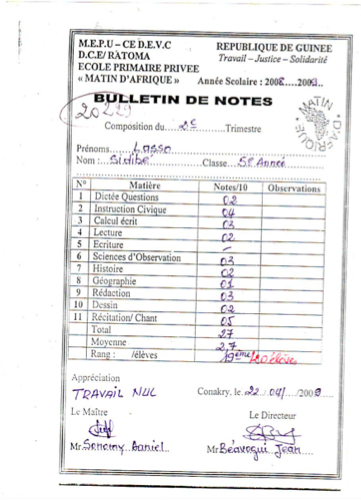 M.E.P.U – CE D.E.V.C REPUBLIQUE DE GUINEE
D.C.E/ RATOMA Travail – Justice – Solidarité
ECOLE PRIMAIRE PRIVEE
« MATIN D'AFRIQUE » Année Scolaire : 2008....2009...
BULLETIN DE NOTES
MATIN D'AFRIQUE
Composition du ..2e........Trimestre
Prénoms......Lasso......
Nom : ...Sidibé......Classe..5e Année
N° Matière Notes/10 Observations
1 Dictée Questions 02
2 Instruction Civique 04
3 Calcul écrit 03
4 Lecture 02
5 Ecriture –
6 Sciences d'Observation 03
7 Histoire 02
8 Géographie 01
9 Rédaction 03
10 Dessin 02
11 Récitation/ Chant 05
Total 27
Moyenne 2,7
Rang : /élèves 19ème/20 élèves
Appréciation
TRAVAIL NUL Conakry, le 22 /04/ 2009
Le Maître Le Directeur
Mr. Daniel Mr Béavogui Jean